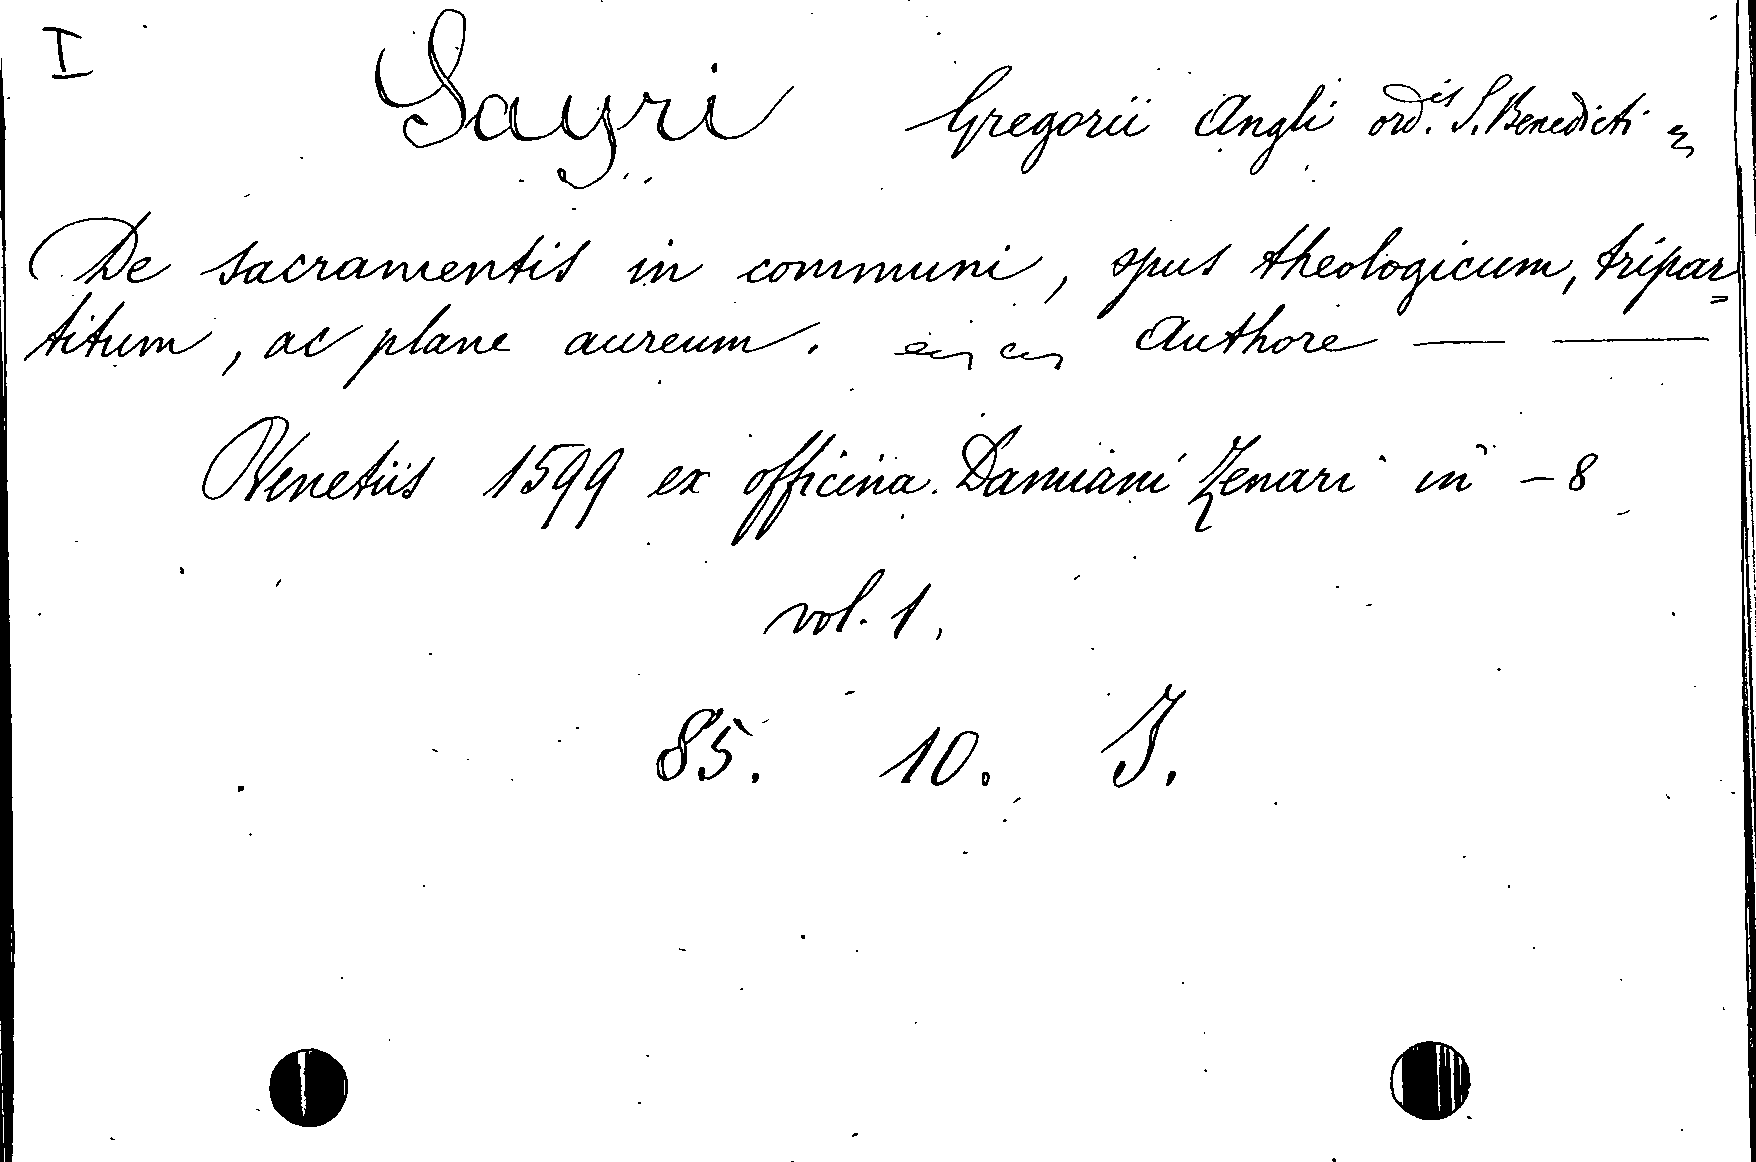 I
Sayri Gregorii Angli ord.is S. Benedicti
De sacramentis in communi, opus theologicum, tripar=
titum, ac plane aureum. Authore — —
Venetiis 1599 ex officina Damiani Zenari in -8
vol. 1.
85. 10. J.